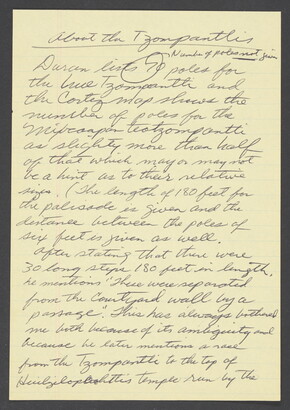 About the Tzompantlis
Number of poles not given
Duran lists 70 poles for
the Huei Tzompantli and
the Cortez map shows the
number of poles for the
Mixcoapan teotzompantli
as slightly more than half
of that which may or may not
be a hint as to their relative
sizes. (The length of 180 feet for
the palisade is given and the
distance between the poles of
six feet is given as well.
After stating that there were
30 long steps 180 feet in length,
he mentions "These were separated
from the Courtyard wall by a
passage". This has always bothered
me both because of its ambiguity and
because he later mentions a race
from the Tzompantli to the top of
temple run by the